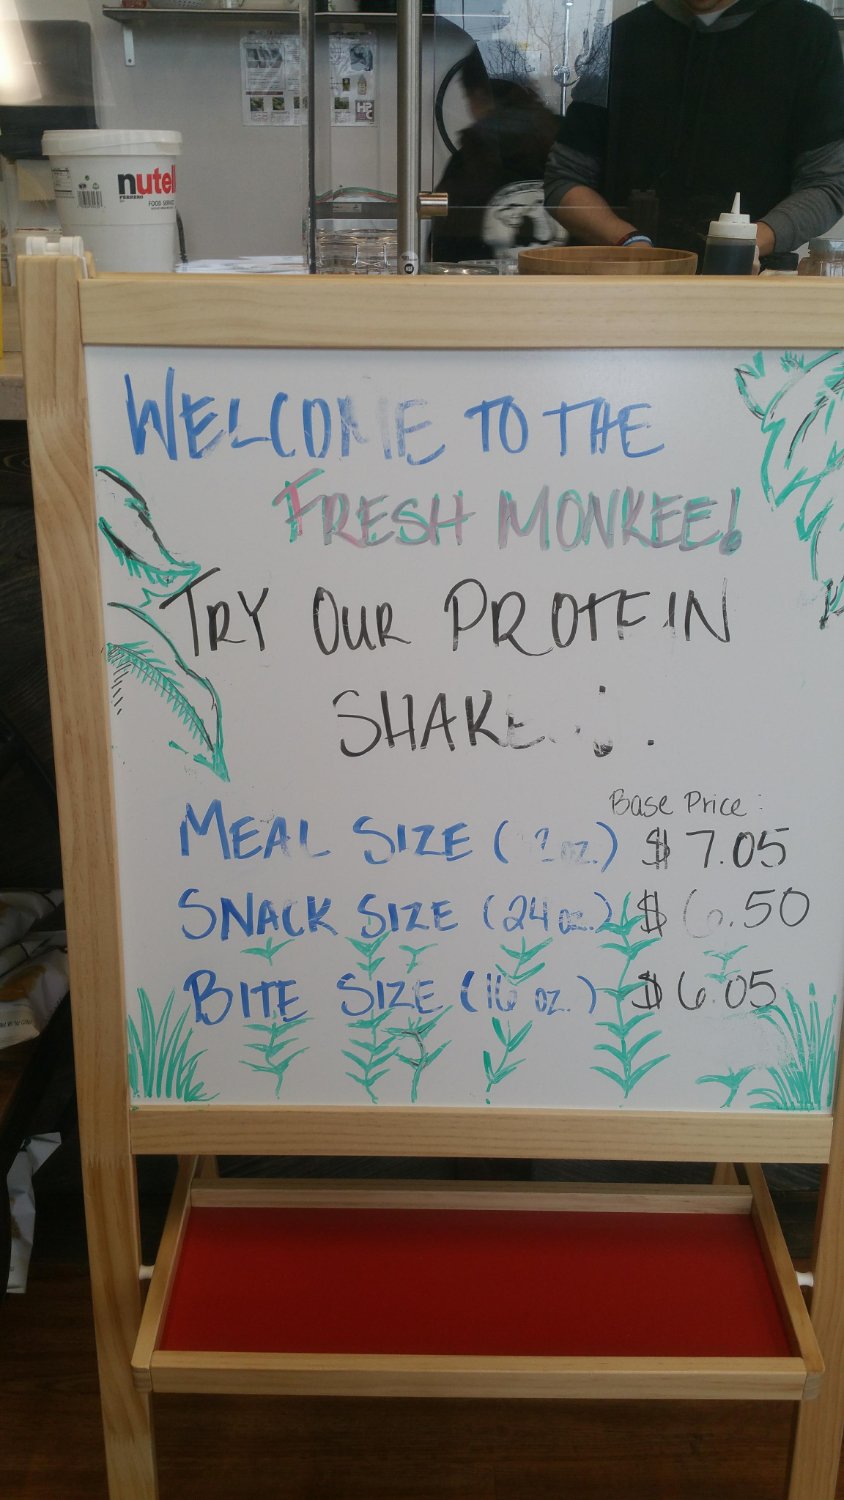 nutel
FERRERO
FOOD SERVICE
WELCOME TO THE
FRESH MONKEE!
TRY OUR PROTEIN
SHAKE
Base Price:
MEAL SIZE ( oz.) $7.05
SNACK SIZE (24 oz.) $6.50
BITE SIZE (16 oz.) $6.05